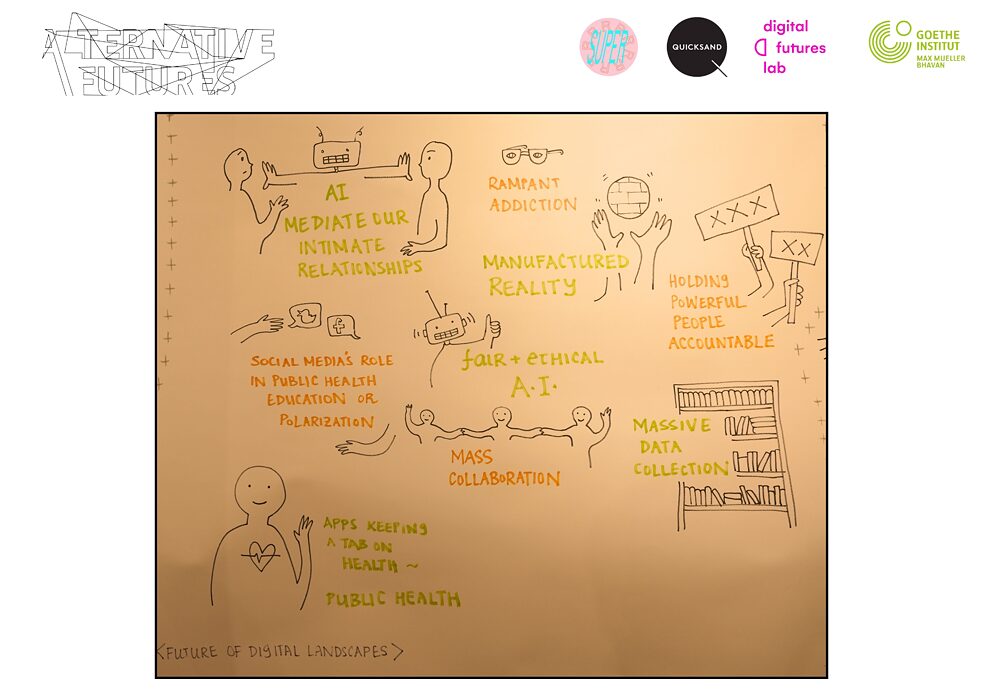 ALTERNATIVE
FUTURES
SUPER
QUICKSAND
digital
futures
lab
GOETHE
INSTITUT
MAX MUELLER
BHAVAN
AI
MEDIATE OUR
INTIMATE
RELATIONSHIPS
RAMPANT
ADDICTION
MANUFACTURED
REALITY
XXX
XX
HOLDING
POWERFUL
PEOPLE
ACCOUNTABLE
f
SOCIAL MEDIA'S ROLE
IN PUBLIC HEALTH
EDUCATION OR
POLARIZATION
fair + ethical
A.I.
MASS
COLLABORATION
MASSIVE
DATA
COLLECTION
APPS KEEPING
A TAB ON
HEALTH ~
PUBLIC HEALTH
<FUTURE OF DIGITAL LANDSCAPES>